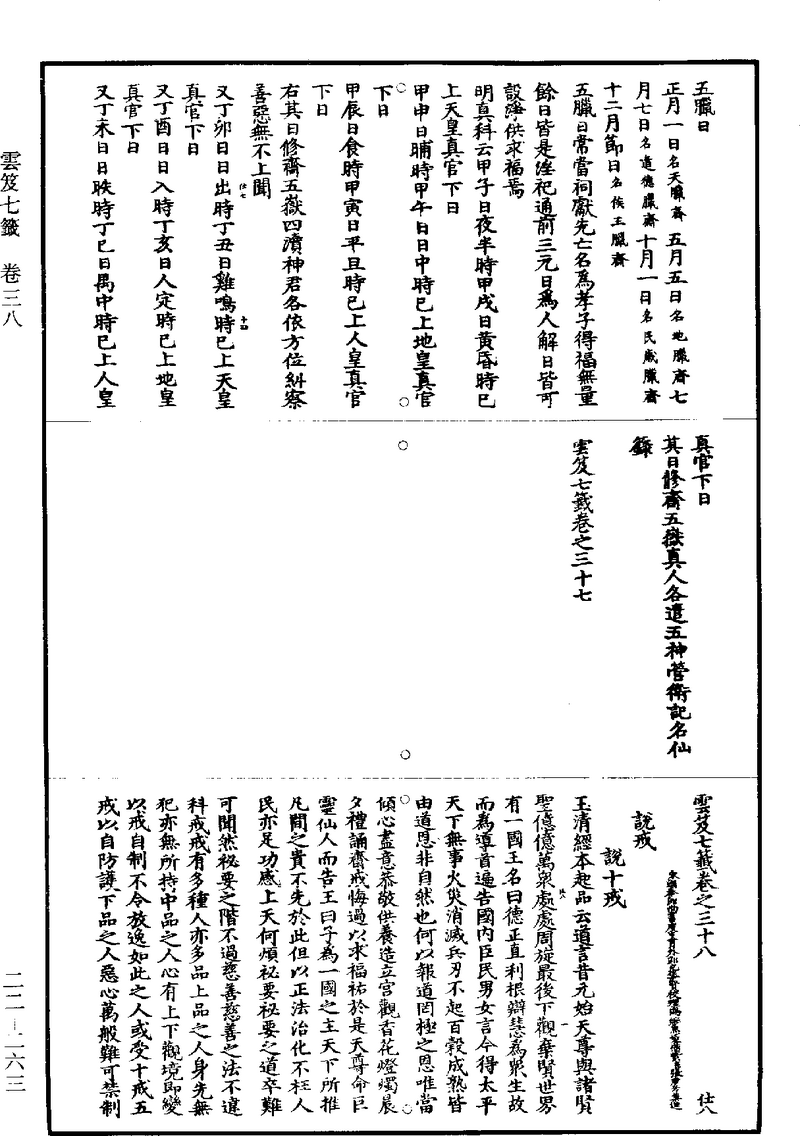 五臘日
正月一日名天臘齋五月五日名地臘齋七
月七日名道德臘齋十月一日名民歲臘齋
十二月節日名侯王臘齋
五臘日常當祠獻先亡名為孝子得福無量
餘日皆是淫祀通前三元日為人解日皆可
設淨供求福焉
明真科云甲子日夜半時甲戌日黃昏時已
上天皇真官下日
甲申日晡時甲午日日中時已上地皇真官
下日
甲辰日食時甲寅日平旦時已上人皇真官
下日
右其日修齋五嶽四瀆神君各依方位糾察
善惡無不上聞
仕七
十四
又丁卯日日出時丁丑日雞鳴時已上天皇
真官下日
又丁酉日日入時丁亥日人定時已上地皇
真官下日
又丁未日日昳時丁巳日禺中時已上人皇
真官下日
其日修齋五嶽真人各遣五神營衛記名仙
籙
雲笈七籤卷之三十七
雲笈七籤卷之三十八
仕八
說戒
說十戒
玉清經本起品云道言昔元始天尊與諸賢
聖億億萬眾處處周旋最後下觀棄賢世界
有一國王名曰德正直利根辯慧為眾生故
而為導首遍告國內臣民男女言今得太平
天下無事火災消滅兵刃不起百穀成熟皆
由道恩非自然也何以報道罔極之恩唯當
傾心盡意恭敬供養造立宮觀香花燈燭晨
夕禮誦齋戒悔過以求福祐於是天尊命巨
靈仙人而告王曰子為一國之主天下所推
凡間之貴不先於此但以正法治化不枉人
民亦足功感上天何煩祕要祕要之道卒難
可聞然祕要之階不過慈善慈善之法不違
科戒戒有多種人亦多品上品之人身先無
犯亦無所持中品之人心有上下觀境即變
以戒自制不令放逸如此之人或受十戒五
戒以自防護下品之人惡心萬般難可禁制
雲笈七籤 卷三八
二二－二六三